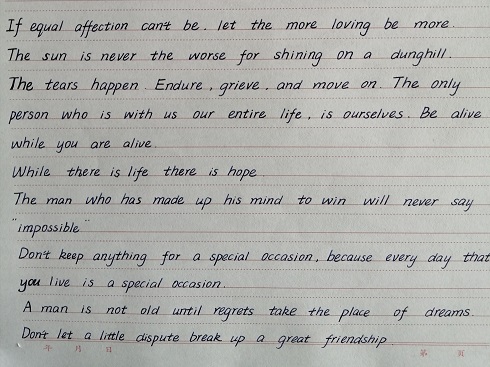 If equal affection can't be. let the more loving be more.
The sun is never the worse for shining on a dunghill.
The tears happen. Endure, grieve, and move on. The only
person who is with us our entire life, is ourselves. Be alive
while you are alive.
While there is life there is hope
The man who has made up his mind to win will never say
"impossible"
Don't keep anything for a special occasion, because every day that
you live is a special occasion.
A man is not old until regrets take the place of dreams.
Don't let a little dispute break up a great friendship.
年 月 日 第 页